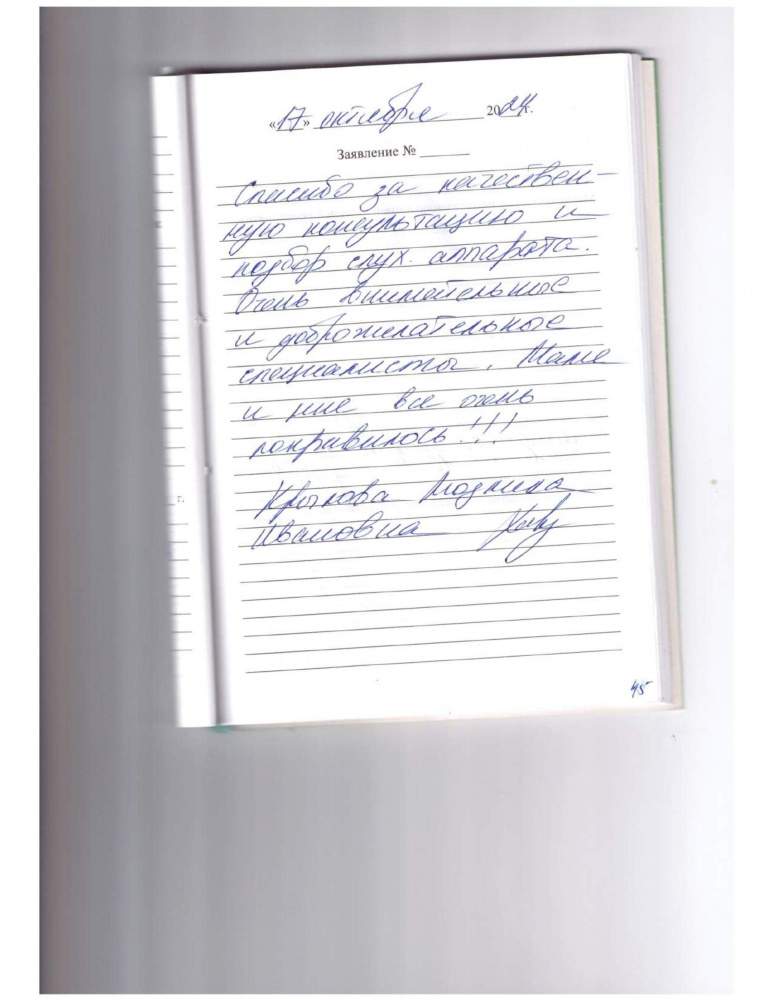 «17» октября 2024г.
Заявление №
Спасибо за качествен-
ную консультацию и
подбор слух. аппарата.
Очень внимательные
и доброжелательные
специалисты. Маме
и мне все очень
понравилось!!!
Крылова Людмила
Ивановна
45